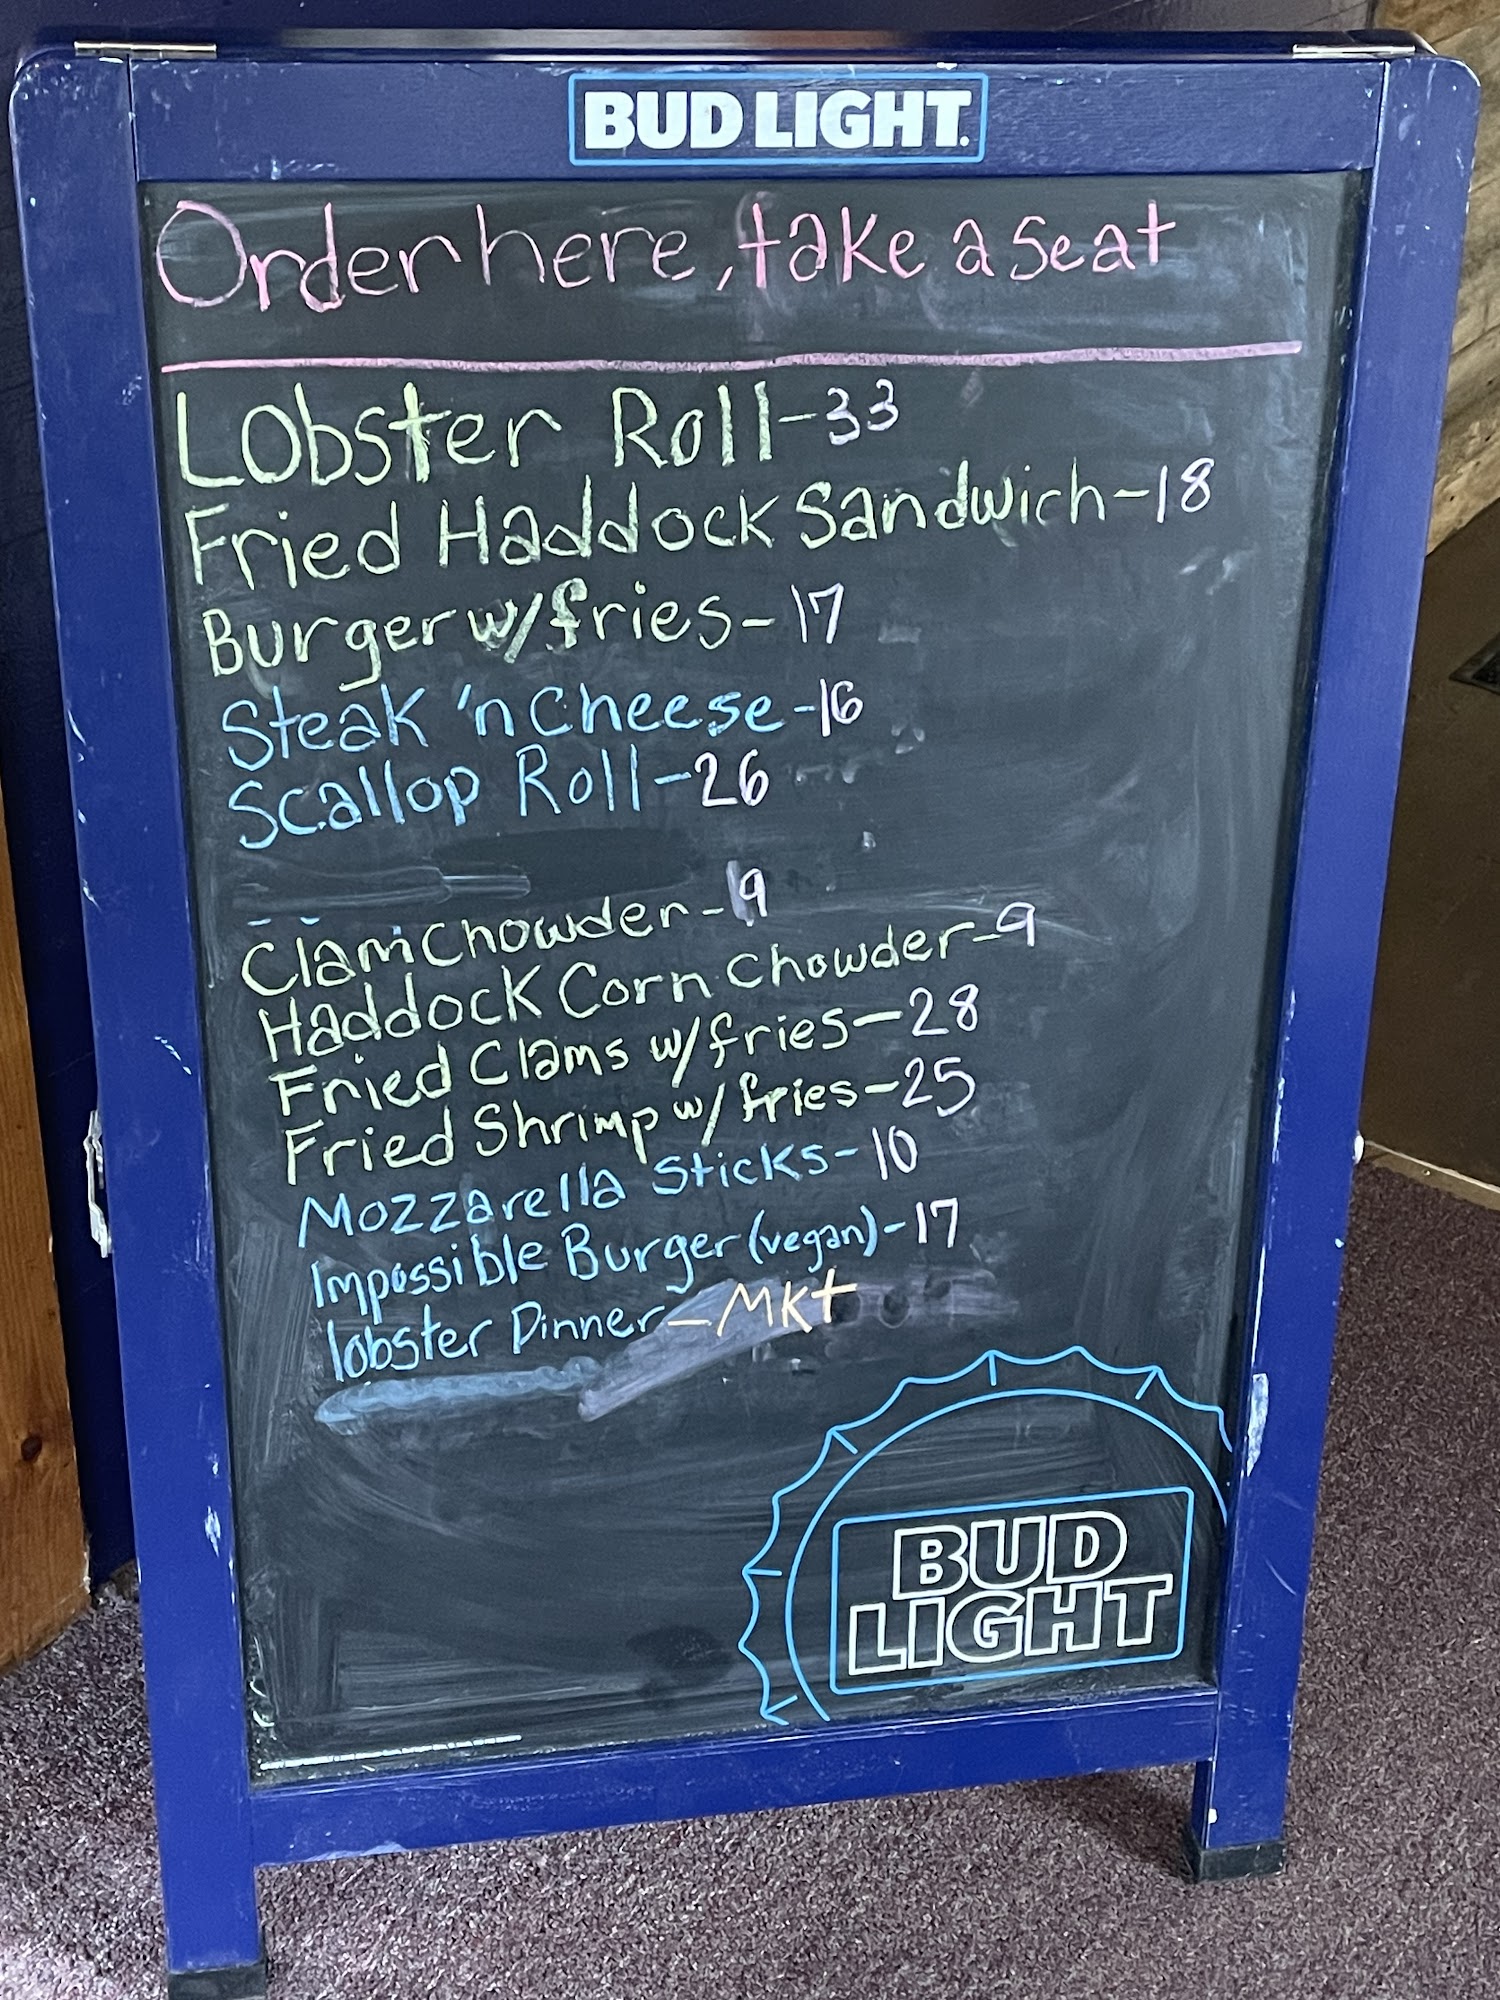 BUD LIGHT.
Order here, take a seat
Lobster Roll-33
Fried Haddock Sandwich-18
Burger w/fries-17
Steak 'n Cheese-16
Scallop Roll-26
Clam Chowder-9
Haddock Corn Chowder-9
Fried Clams w/fries-28
Fried Shrimp w/fries-25
Mozzarella Sticks-10
Impossible Burger (vegan)-17
lobster Dinner-Mkt
BUD
LIGHT